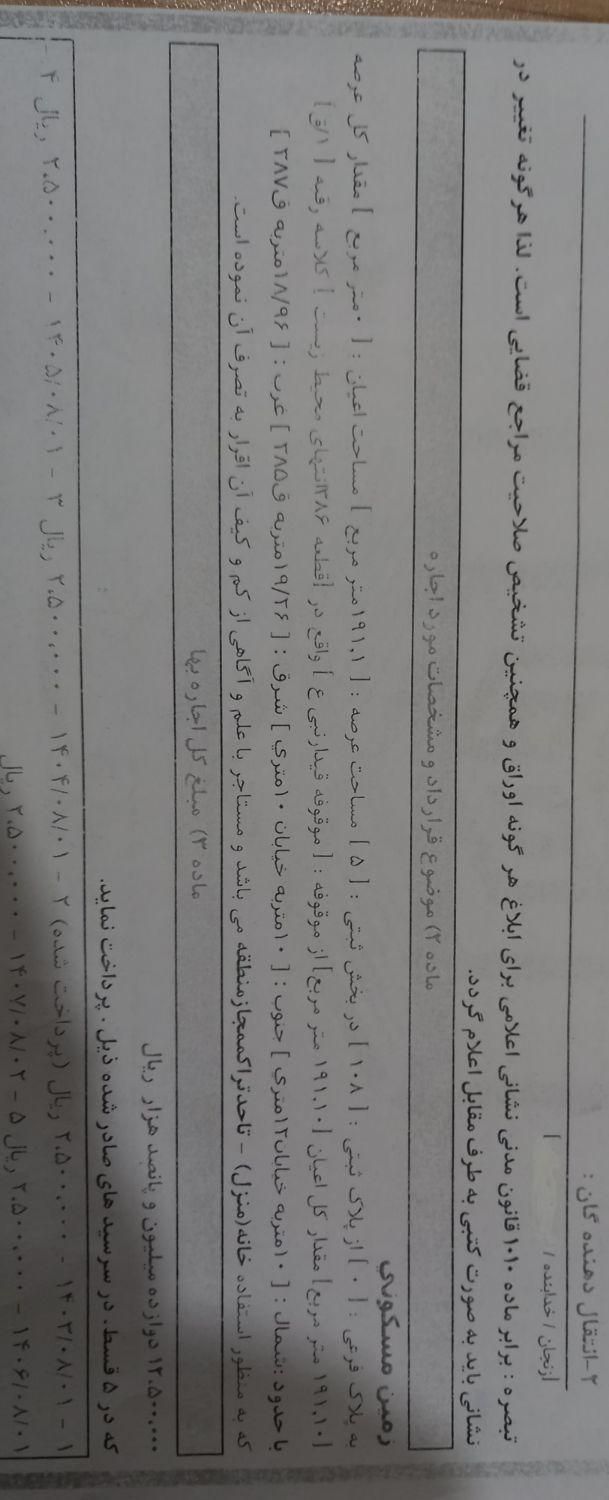 ۲-انتقال دهنده گان :
[زنجان / خدابنده / ]
تبصره : برابر ماده ۱۰۱۰ قانون مدنی نشانی اعلامی برای ابلاغ هر گونه اوراق و همچنین تشخیص صلاحیت مراجع قضایی است. لذا هر گونه تغییر در
نشانی باید به صورت کتبی به طرف مقابل اعلام گردد.
ماده ۲) موضوع قرارداد و مشخصات مورد اجاره
زمین مسکونی
به پلاک فرعی : [ ۰ ] از پلاک ثبتی : [ ۱۰۸ ] در بخش ثبتی : [ ۵ ] مساحت عرصه : [ ۱۹۱.۱متر مربع ] مساحت اعیان : [ ۰متر مربع ] مقدار کل عرصه
[۱۹۱.۱۰ متر مربع] مقدار کل اعیان [۱۹۱.۱۰ متر مربع] از موقوفه : [ موقوفه قیدارنبی ع ] واقع در [قطعه ۳۸۶انتهای محیط زیست ] کلاسه رقبه [ ۱/ق ]
با حدود :شمال : [ ۱۰متربه خیابان۱۲متری ] جنوب : [ ۱۰متربه خیابان ۱۰متری ] شرق : [ ۱۹/۲۶متربه ق۳۸۵ ] غرب : [ ۱۸/۹۶متربه ق۳۸۷ ]
که به منظور استفاده خانه(منزل) - تاحدتراکممجازمنطقه می باشد و مستاجر با علم و آگاهی از کم و کیف آن اقرار به تصرف آن نموده است.
ماده ۳) مبلغ کل اجاره بها
۱۲.۵۰۰.۰۰۰ دوازده میلیون و پانصد هزار ریال
که در ۵ قسط، در سر سید های صادر شده ذیل ، پرداخت نماید.
۱ - ۱۴۰۳/۰۸/۰۱ - ۲.۵۰۰.۰۰۰ ریال (پرداخت شده) ۲ - ۱۴۰۴/۰۸/۰۱ - ۲.۵۰۰.۰۰۰ ریال ۳ - ۱۴۰۵/۰۸/۰۱ - ۲.۵۰۰.۰۰۰ ریال ۴ -
۱۴۰۶/۰۸/۰۱ - ۲.۵۰۰.۰۰۰ ریال ۵ - ۱۴۰۷/۰۸/۰۲ - ۲.۵۰۰.۰۰۰ ریال